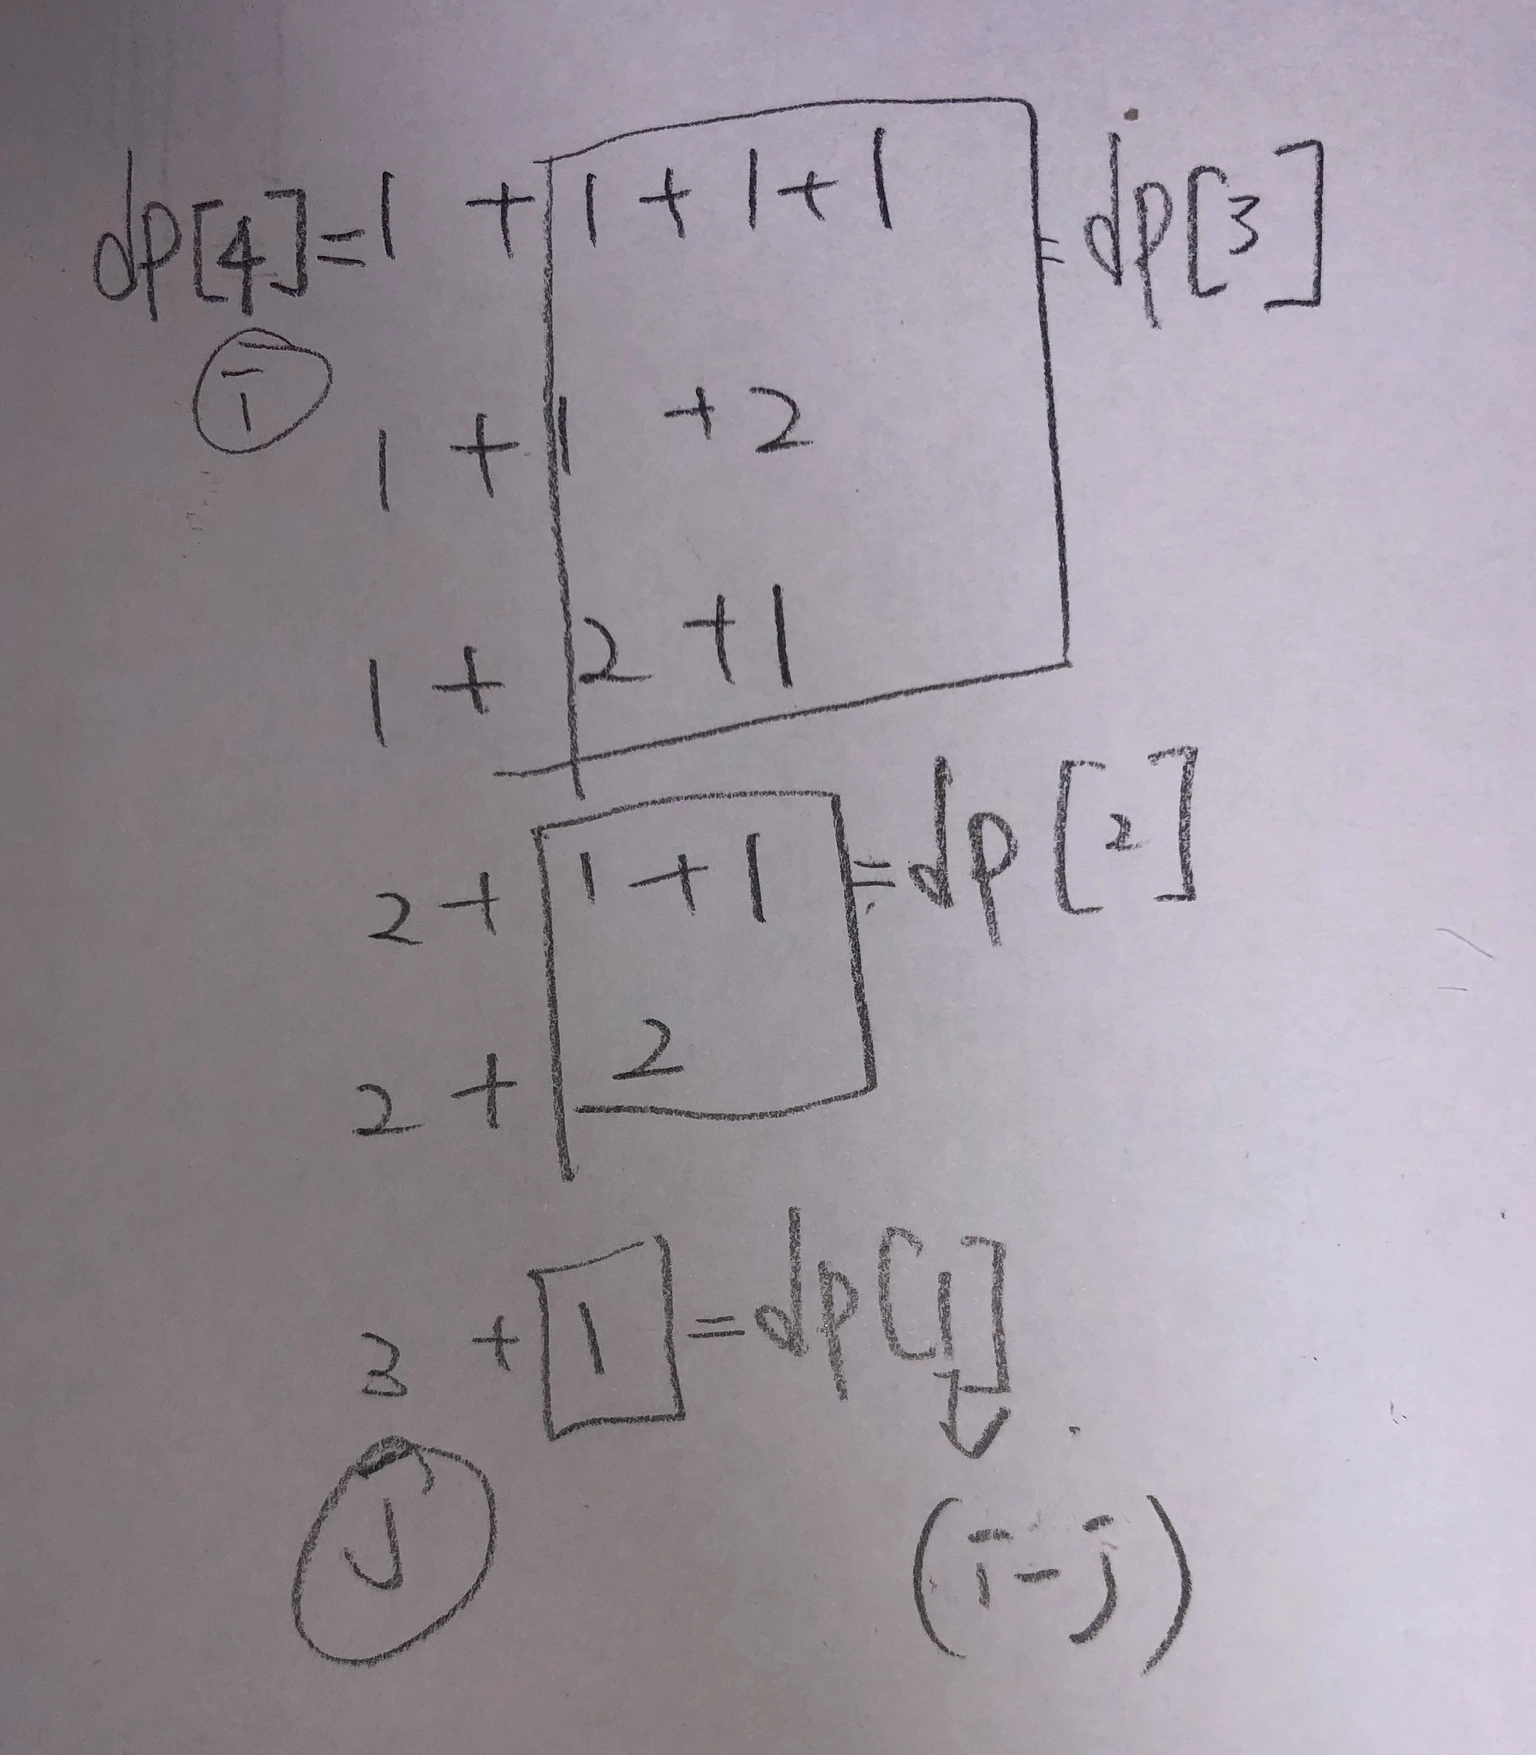 dp[4]=1 + 1 + 1 + 1 = dp[3]
i
1 + 1 + 2
1 + 2 + 1
2 + 1 + 1 = dp[2]
2 + 2
3 + 1 = dp[1]
j
(i-j)